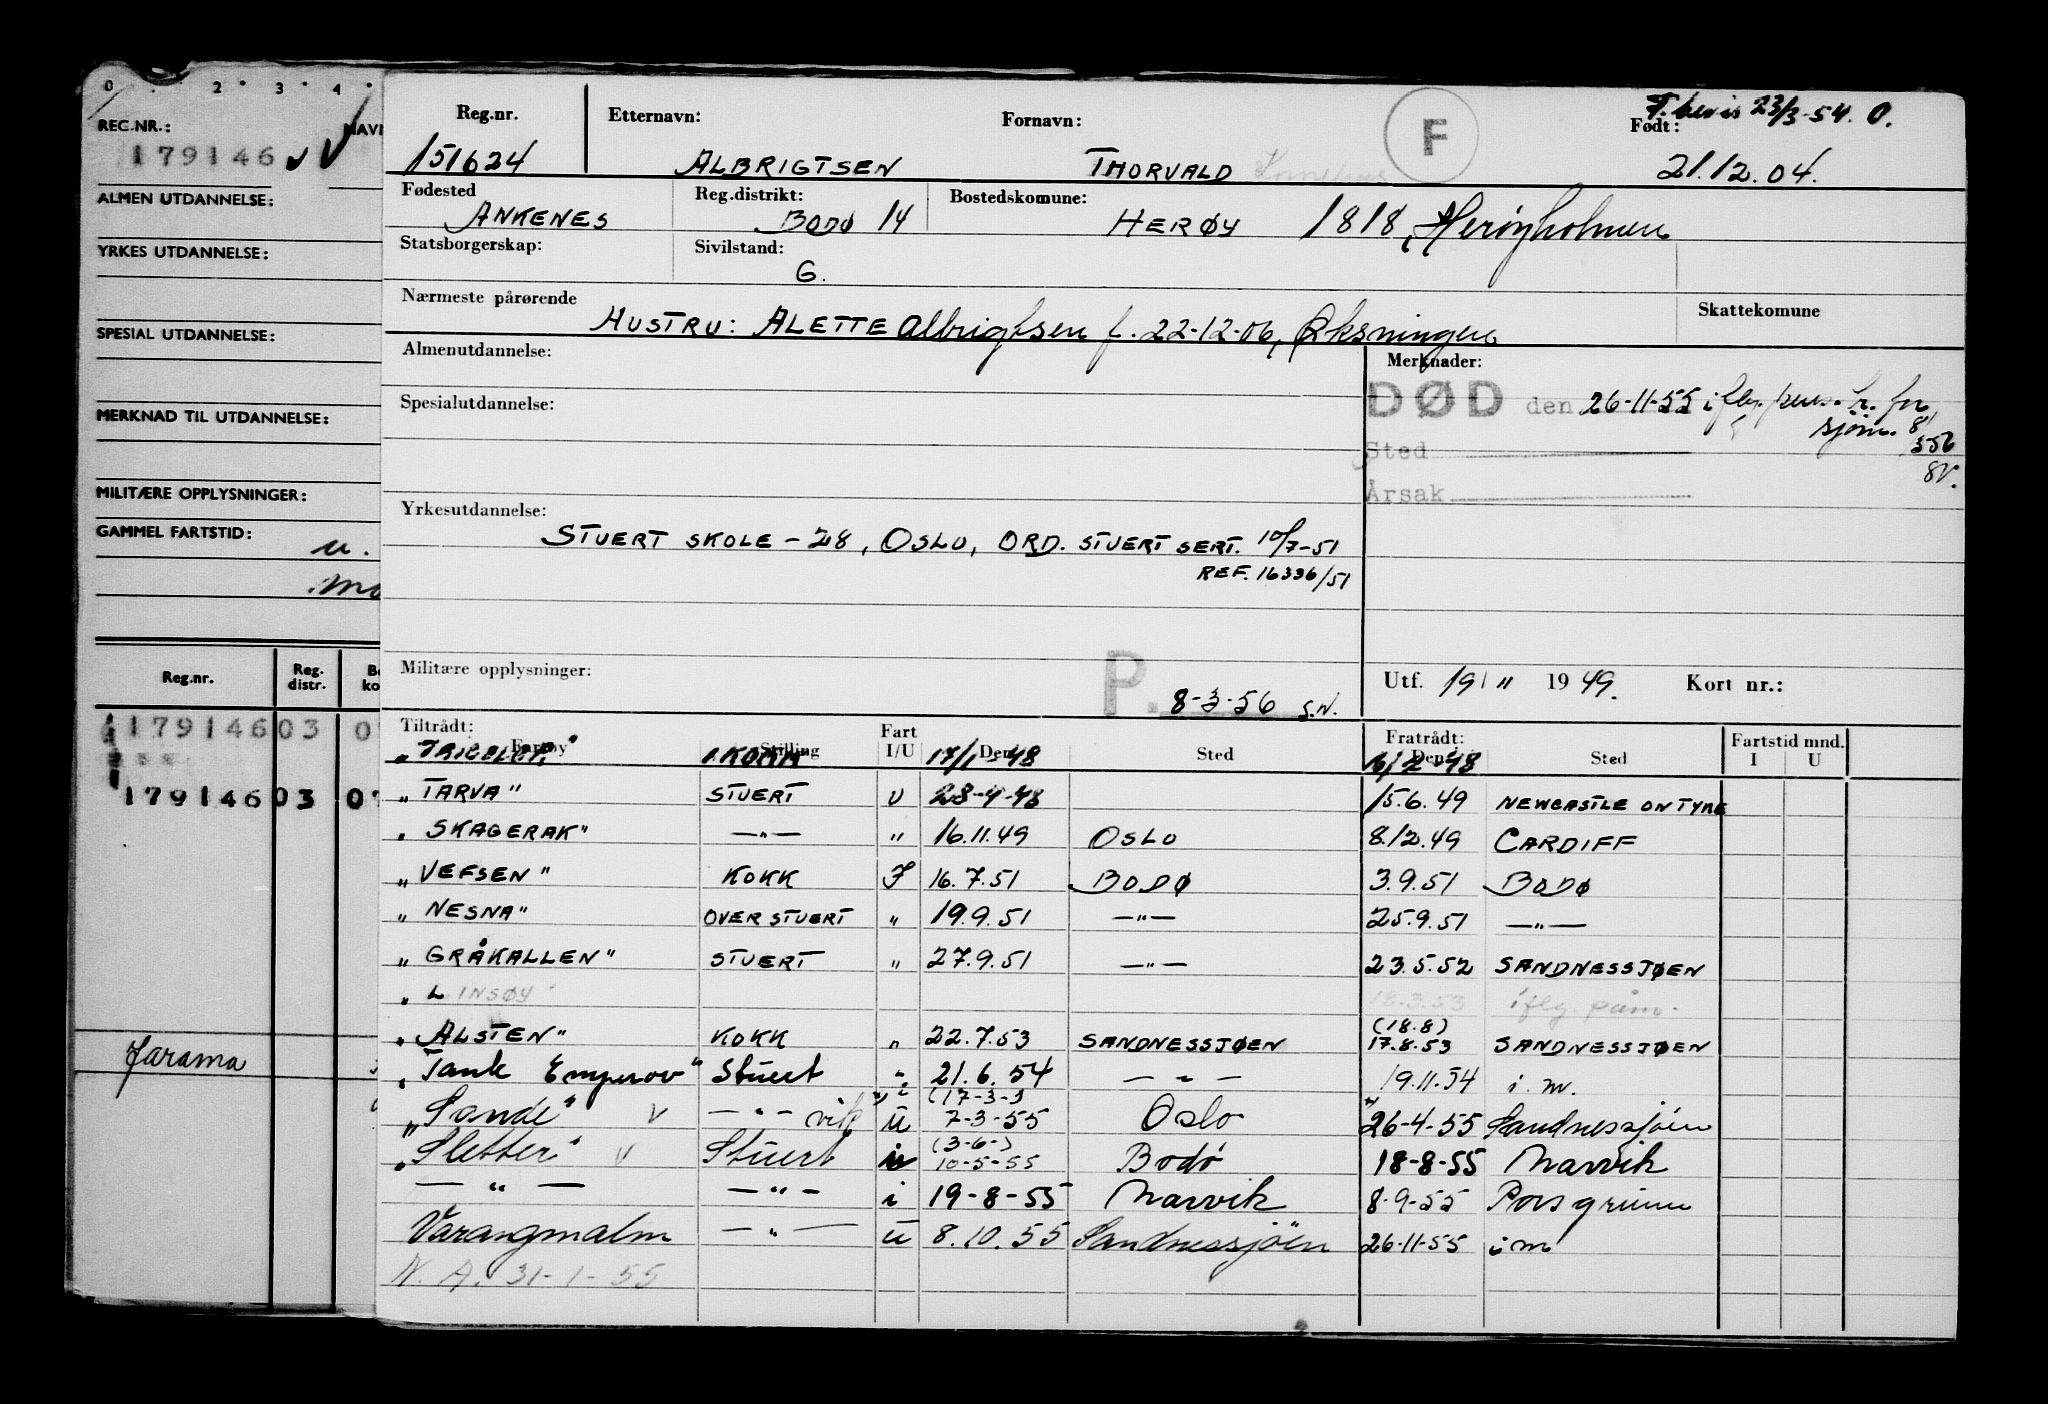 0 . 2 . 3 . 4 .
REG.NR.: NAVN
179146
ALMEN UTDANNELSE:
YRKES UTDANNELSE:
SPESIAL UTDANNELSE:
MERKNAD TIL UTDANNELSE:
MILITÆRE OPPLYSNINGER:
GAMMEL FARTSTID: u.
Reg.nr. Reg. distr.
179146 03 0
179146 03 07
Jarama
Reg.nr. Etternavn: Fornavn: F Født: F.bevis 23/3-54. O.
151624 ALBRIGTSEN THORVALD 21.12.04.
Fødested Reg.distrikt: Bostedskomune:
ANKENES BODØ 14 HERØY 1818, Herøyholmen
Statsborgerskap: Sivilstand:
G.
Nærmeste pårørende Skattekomune
HUSTRU: ALETTE Albrigtsen f. 22-12-06, Øksningen
Almenutdannelse: Merknader:
DØD den 26-11-55 iflg. pens. tr. for
Spesialutdannelse: sjøm. 8/
Sted 3 56
Årsak SV.
Yrkesutdannelse:
STUERT SKOLE - 28, OSLO, ORD. STUERT SERT. 10/7-51
REF. 16336/51
Militære opplysninger: P. 8-3-56 S.N. Utf. 19/11 1949. Kort nr.:
Tiltrådt: Fratrådt: Fartstid mnd.
Fartøy Stilling Fart I/U Den Sted Den Sted I U
KOKK 17/1-48 6/2-48
"TARVA" STUERT U 28-4-48 15.6.49 NEWCASTLE ON TYNE
"SKAGERAK" —"— " 16.11.49 OSLO 8.12.49 CARDIFF
"VEFSEN" KOKK I 16.7.51 BODØ 3.9.51 BODØ
"NESNA" OVERSTUERT " 19.9.51 —"— 25.9.51 —"—
"GRÅKALLEN" STUERT " 27.9.51 —"— 23.5.52 SANDNESSJØEN
"LINSØY" 18.3.53 iflg. påm.
"ALSTEN" KOKK " 22.7.53 SANDNESSJØEN (18.8) 17.8.53 SANDNESSJØEN
"Tank Emperor" Stuert " 21.6.54 —"— 19.11.54 i.m.
"Sande" V —"— vik ü (17-3-) 7-3-55 Oslo 26-4-55 Sandnessjøen
"Sletter" V Stuert u (3-6-) 10-5-55 Bodö 18-8-55 Narvik
—"— —"— i 19-8-55 Narvik 8-9-55 Porsgrunn
Varangmalm —"— ü 8.10.55 Sandnessjöen 26-11-55 i m
N.A. 31-1-55